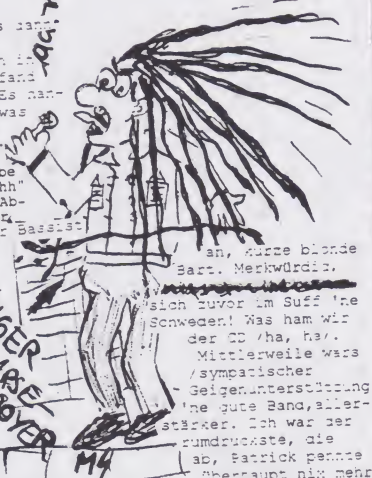 s dann
n in
fand
Es han-
was
be
hh"
Ab-
r Bassist
an, kurze blonde
Bart. Merkwürdig,
sich zuvor im Suff 'ne
Schweden! Was ham wir
der CD /ha, ha/.
Mittlerweile wars
/sympatischer
Geigenunterstützung
'ne gute Band,aller-
stärker. Ich war der
rumdruckste, die
ab, Patrick pennte
überhaupt nix mehr
M4